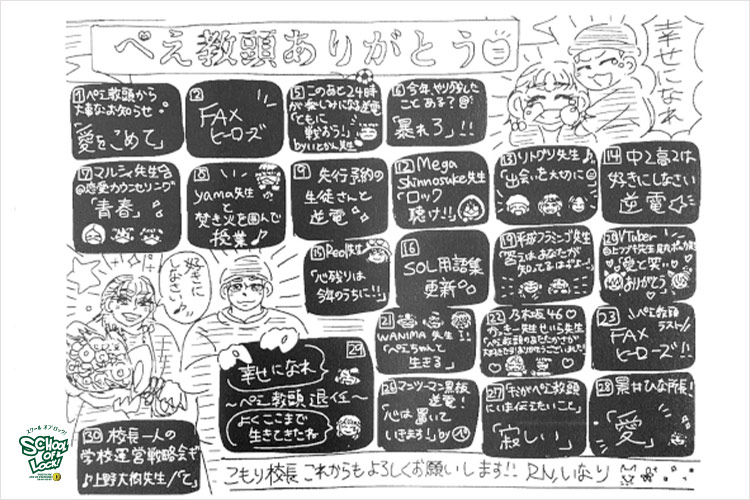 ぺえ教頭ありがとう
幸せになれ
1 ぺえ教頭から
大事なお知らせ
「愛をこめて」
2
FAX
ヒーローズ
5 このあと24時
が楽しみになる逆電
「ともに
戦おう!」
byいとかん先生
6 今年、やり残した
ことある?
「暴れろ」!!
7 マルシィ先生
@恋愛カウンセリング
「青春」
8
yama先生
と
焚き火を囲んで
授業♪
9 先行予約の
生徒さんと
逆電
12 Mega
Shinnosuke先生
「ロック
聴け!!」
13 リトグリ先生♪
「出会いを大切に」
14 中2、高2は
好きにしなさい
逆電☆
15 Reol先生
「心残りは
今年のうちに!!」
16
SOL用語集
更新
19 平成フラミンゴ先生
「答えはあなたが
知ってるはずよ…」
20 VTuber
「愛と笑い
ありがとう」
好きに
しなさい♪
21
WANIMA先生!!
「ぺえちゃんって
生きる」
22 乃木坂46♡
ガッキー先生せいら先生
「ぺえ教頭のあたたかさが
大好きです!ありがとうございました!」
23 ぺえ教頭
ラスト!!
FAX
ヒーローズ!!
26 マンツーマン黒板
逆電!
「心は置いて
いきよう!」by ぺ
27 「私がぺえ教頭
にいま伝えたいこと」
「寂しい」
28 黒井ひな所長!
「愛」
29
幸せになれ
～ぺえ教頭 退任～
よくここまで
生きてきたね
30 校長一人の
学校運営戦略会議
♪上野大樹先生/「て」
こもり校長 これからもよろしくお願いします!! RN/いなり
スクール オブ ロック!
SCHOOL
OF
LOCK!